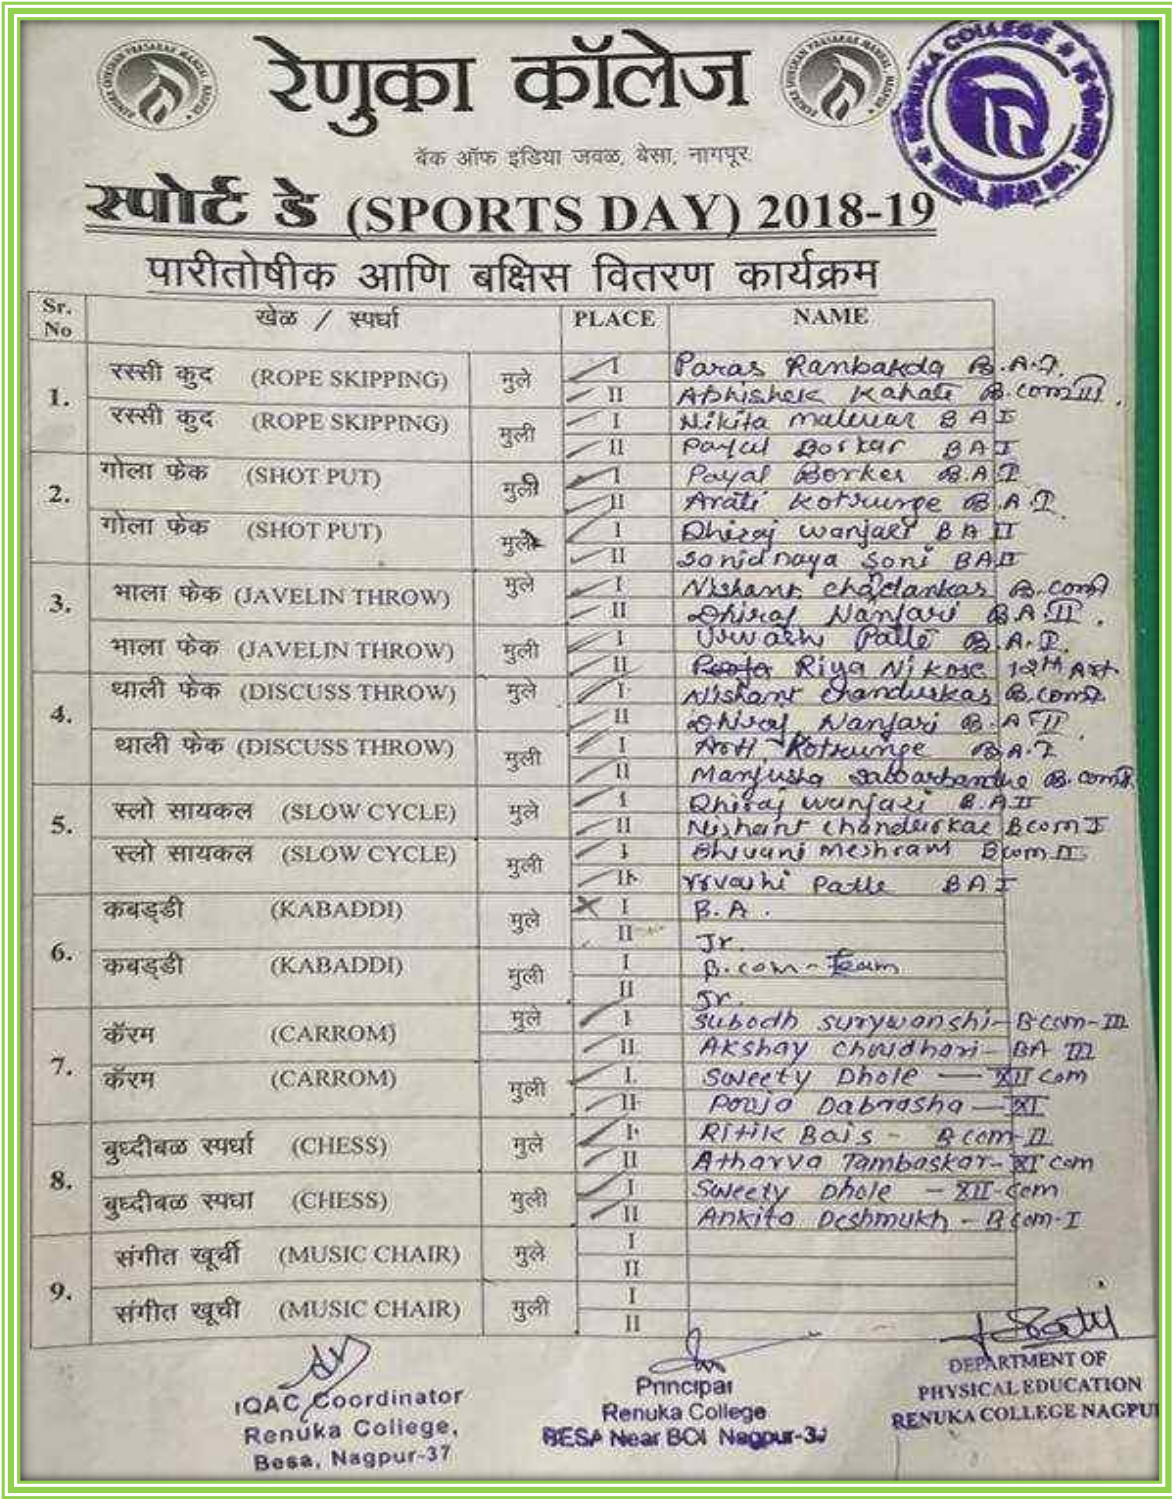 रेणुका कॉलेज
बॅक ऑफ इंडिया जवळ, बेसा, नागपूर.
स्पोर्ट डे (SPORTS DAY) 2018-19
पारीतोषीक आणि बक्षिस वितरण कार्यक्रम
Sr. No खेळ / स्पर्धा PLACE NAME
1. रस्सी कुद (ROPE SKIPPING) मुले I Paras B.A.I
II Abhishek Kahate B.com III
रस्सी कुद (ROPE SKIPPING) मुली I Nikita BA I
II Payal Borkar BA I
2. गोला फेक (SHOT PUT) मुली I Payal Borker B.A I
II Arati B.A.I
गोला फेक (SHOT PUT) मुले I Dhiraj wanjari BA II
II Sanidnaya Soni BA II
3. भाला फेक (JAVELIN THROW) मुले I Nishant B.com
II Dhiraj Wanjari B.A.II.
भाला फेक (JAVELIN THROW) मुली I Urwashi Palle B.A.I.
II Riya Nikose 12th Art
4. थाली फेक (DISCUSS THROW) मुले I Nishant chanduskas B.com
II Dhiraj Wanjari B.A II
थाली फेक (DISCUSS THROW) मुली I Arti B.A.I
II Manjusha B.com
5. स्लो सायकल (SLOW CYCLE) मुले I Dhiraj wanjari B.A II
II Nishant Bcom I
स्लो सायकल (SLOW CYCLE) मुली I Meshram Bcom
II Patle BA I
6. कबड्डी (KABADDI) मुले I B.A.
II Jr.
कबड्डी (KABADDI) मुली I B.com-Team
II Jr.
7. कॅरम (CARROM) मुले I Subodh surywanshi- B-com-III
II Akshay Choudhari- BA III
कॅरम (CARROM) मुली I. Sweety Dhole — XII com
II Pooja Dabrasha — XI
8. बुध्दीबळ स्पर्धा (CHESS) मुले I Ritik Bais - B com-II
II Atharva Tambaskar- XI com
बुध्दीबळ स्पधा (CHESS) मुली I Sweety Dhole - XII-com
II Ankita Deshmukh - B com-I
9. संगीत खूर्ची (MUSIC CHAIR) मुले I
II
संगीत खूची (MUSIC CHAIR) मुली I
II
IQAC Coordinator
Renuka College,
Besa, Nagpur-37
Principal
Renuka College
BESA Near BOI Nagpur-37
DEPARTMENT OF
PHYSICAL EDUCATION
RENUKA COLLEGE NAGPU